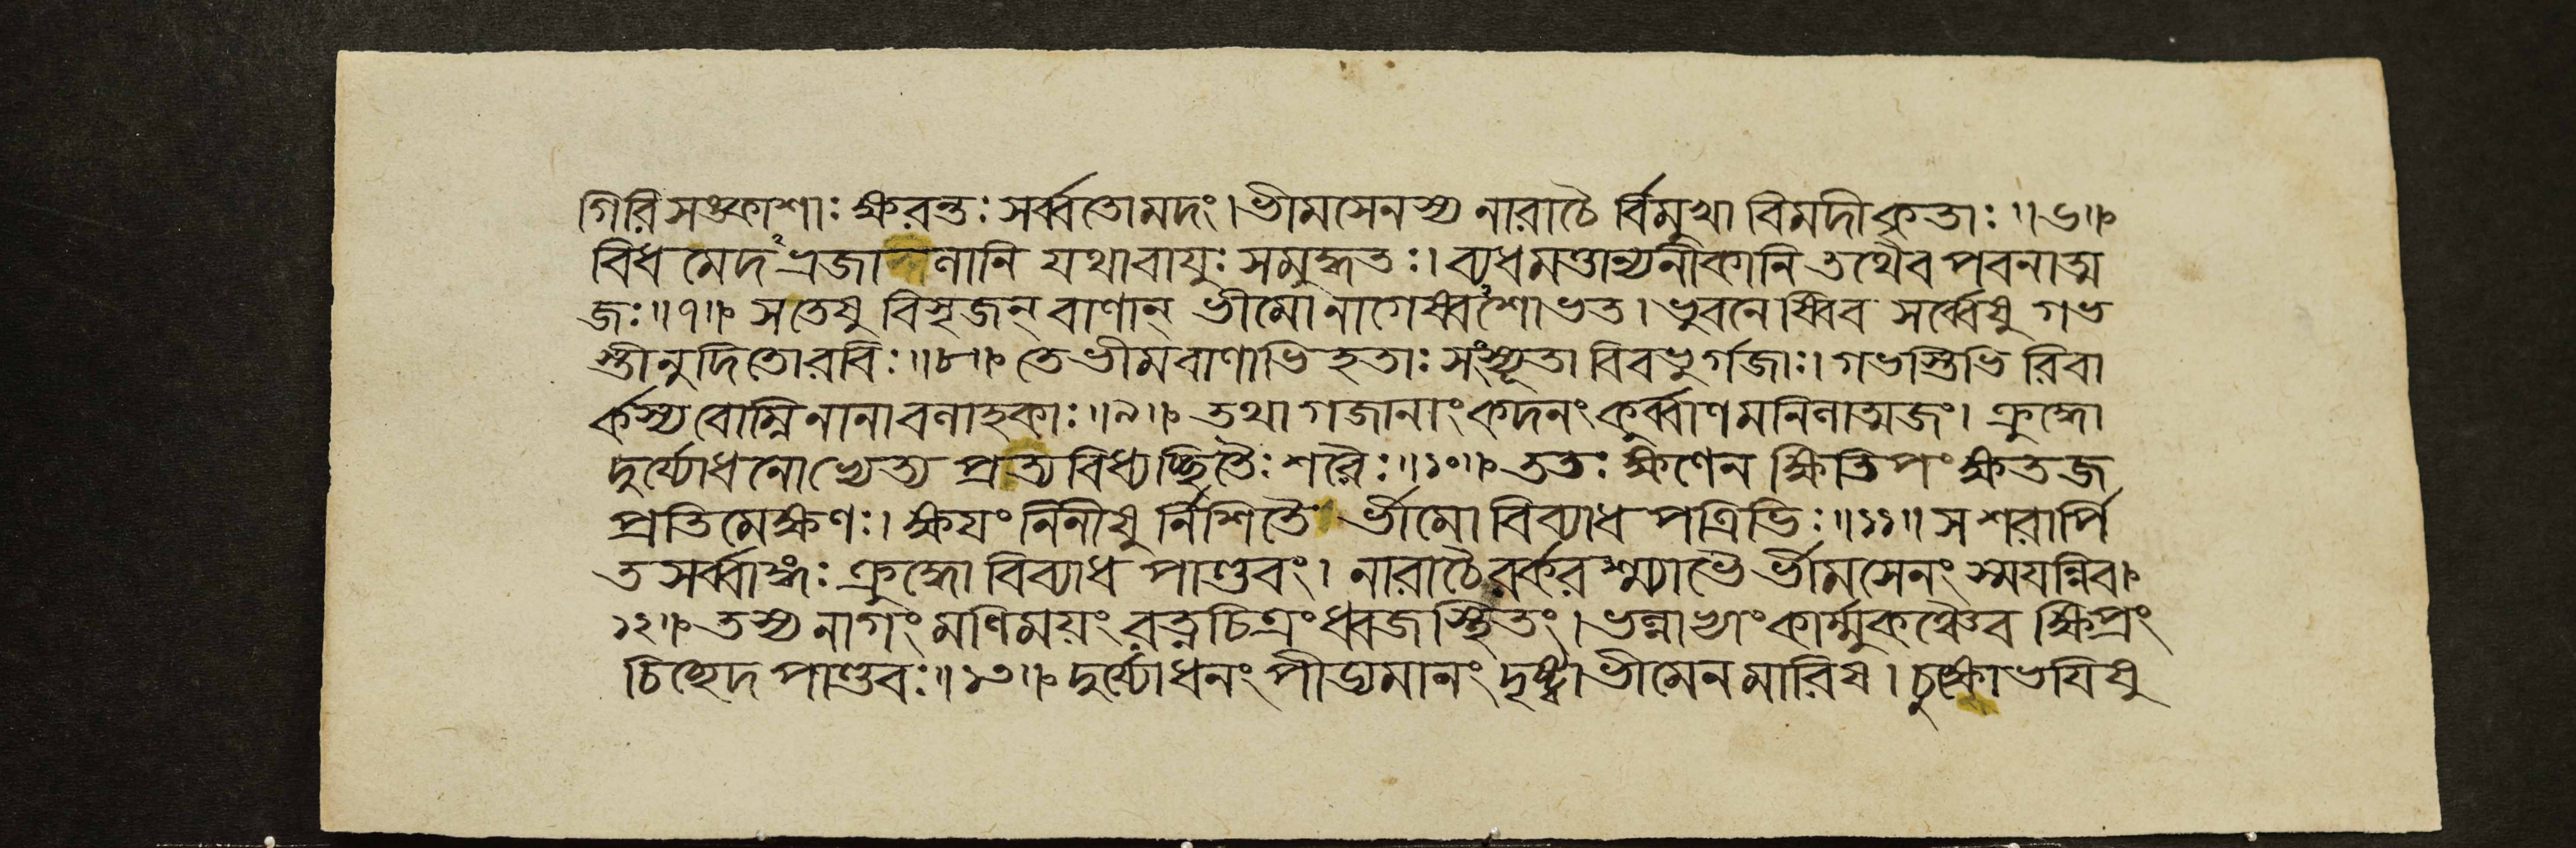 গিরিসঙ্কাশাঃ ক্ষরন্তঃ সর্ব্বতোমদং। ভীমসেনস্য নারাচৈ র্বিমুখা বিমদীকৃতাঃ॥৬॥
বিধমেদভ্রজালানি যথাবায়ুঃ সমুদ্ধতঃ। ব্যধমত্তান্যনীকানি তথৈব পবনাত্ম
জঃ॥৭॥ সতেষু বিসৃজন্ বাণান্ ভীমোনাগেষ্বশোভত। ভুবনেষ্বিব সর্ব্বেষু গভ
স্তীনুদিতোরবিঃ॥৮॥ তে ভীমবাণাভিহতাঃ সংস্যূতা বিবভুর্গজাঃ। গভস্তিভি রিবা
র্কস্য ব্যোম্নি নানাবলাহকাঃ॥৯॥ তথা গজানাং কদনং কুর্ব্বাণমনিলাত্মজং। ক্রুদ্ধো
দুর্য্যোধনোভ্যেত্য প্রত্যবিধ্যচ্ছিতৈঃ শরৈঃ॥১০॥ ততঃ ক্ষণেন ক্ষিতিপং ক্ষতজ
প্রতিমেক্ষণঃ। ক্ষয়ং নিনীষু র্নিশিতৈ র্ভীমো বিব্যাধ পত্রিভিঃ॥১১॥ স শরার্পি
ত সর্ব্বাঙ্গঃ ক্রুদ্ধো বিব্যাধ পাণ্ডবং। নারাচৈরর্করশ্ম্যাভৈ র্ভীমসেনং স্ময়ন্নিব॥
১২॥ তস্য নাগং মণিময়ং রত্নচিত্রং ধ্বজস্থিতং। ভল্লাভ্যাং কার্ম্মুকঞ্চৈব ক্ষিপ্রং
চিচ্ছেদ পাণ্ডবঃ॥১৩॥ দুর্য্যোধনং পীড্যমানং দৃষ্ট্বা ভীমেন মারিষ। চুক্ষোভয়িষু